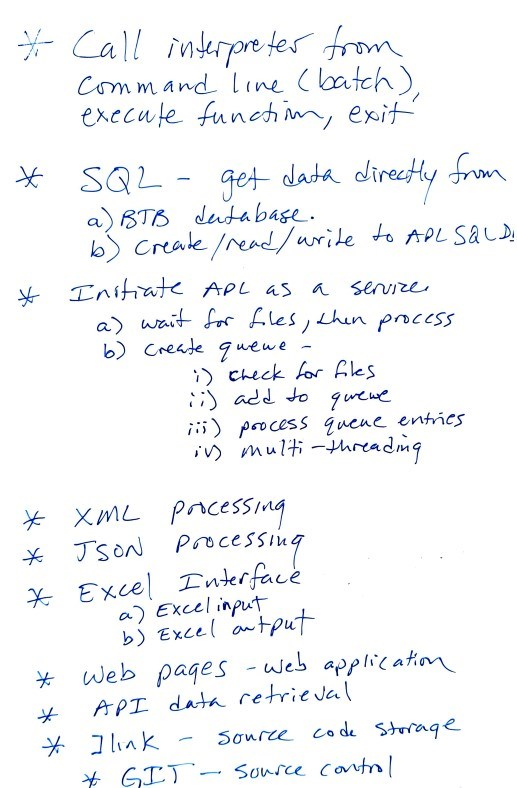 * Call interpreter from
command line (batch),
execute function, exit
* SQL - get data directly from
a) BTB database.
b) Create/read/write to APL SQL D
* Initiate APL as a service
a) wait for files, then process
b) create queue -
i) check for files
ii) add to queue
iii) process queue entries
iv) multi-threading
* XML Processing
* JSON Processing
* Excel Interface
a) Excel input
b) Excel output
* Web pages - web application
* API data retrieval
* ]link - source code storage
* GIT - source control